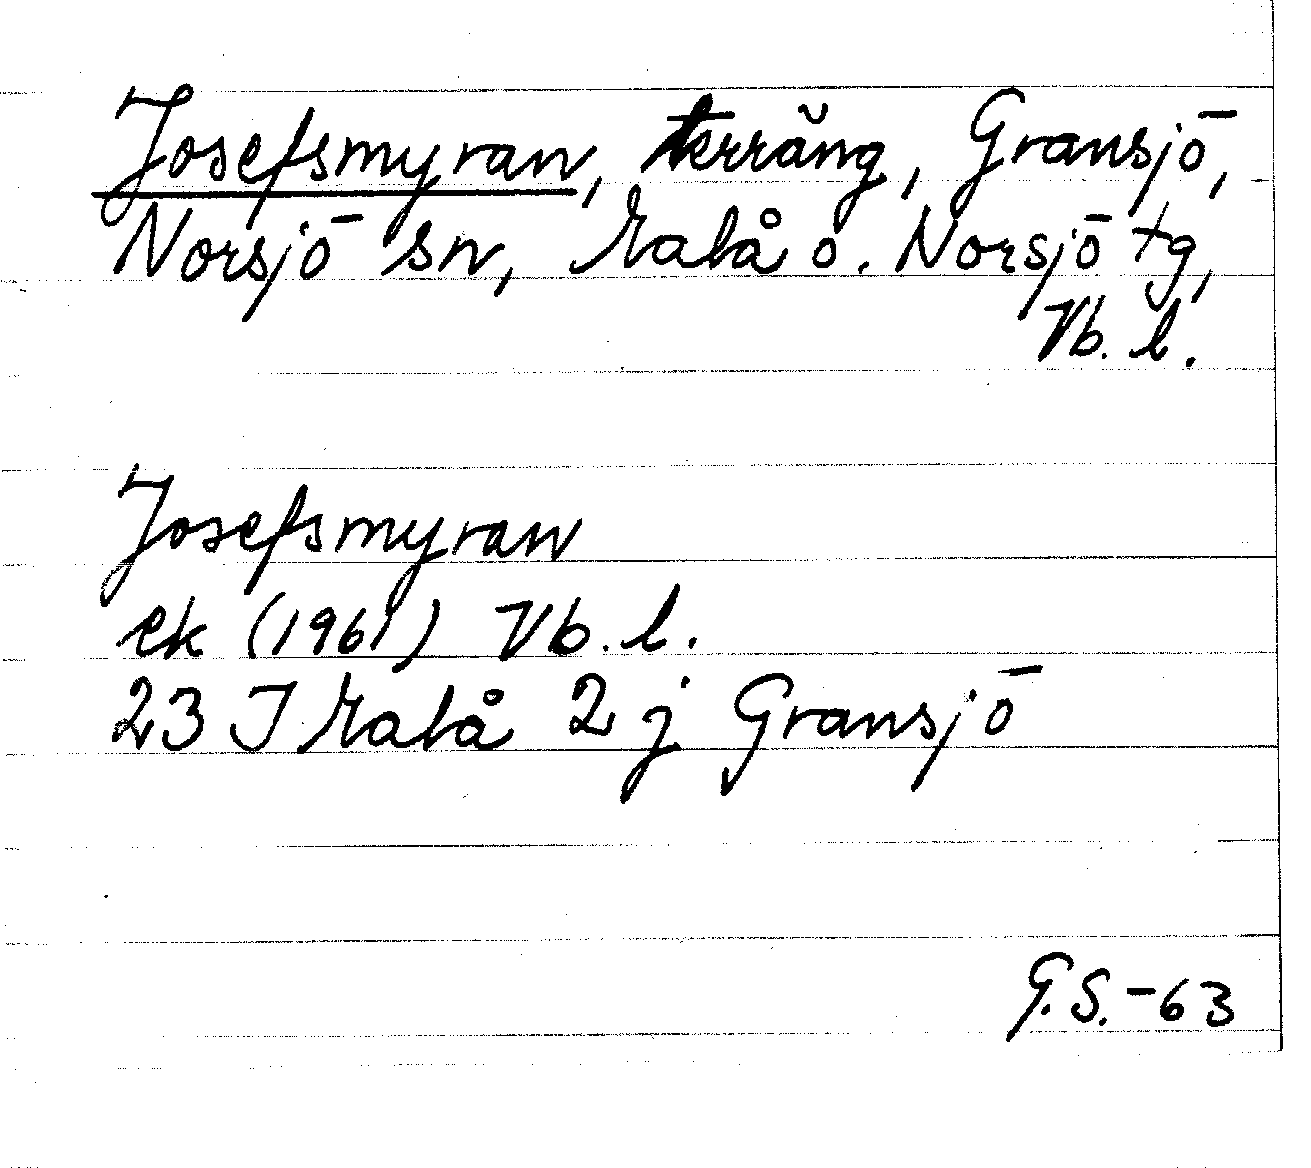 Josefsmyran, terräng, Gransjö,
Norsjö sn, Malå o. Norsjö tg,
Vb. l.
Josefsmyran
ek (1961) Vb. l.
23 J Malå 2 j Gransjö
G.S.-63